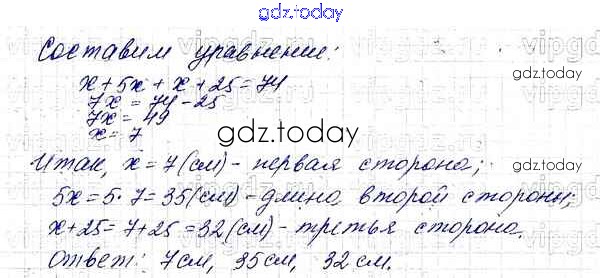 gdz.today
Составим уравнение:
gdz.today
x + 5x + x + 25 = 74
7x = 74 - 25
7x = 49
x = 7
gdz.today
Итак, x = 7 (см) - первая сторона;
5x = 5 · 7 = 35 (см) - длина второй стороны;
x + 25 = 7 + 25 = 32 (см) - третья сторона.
Ответ: 7 см, 35 см, 32 см.